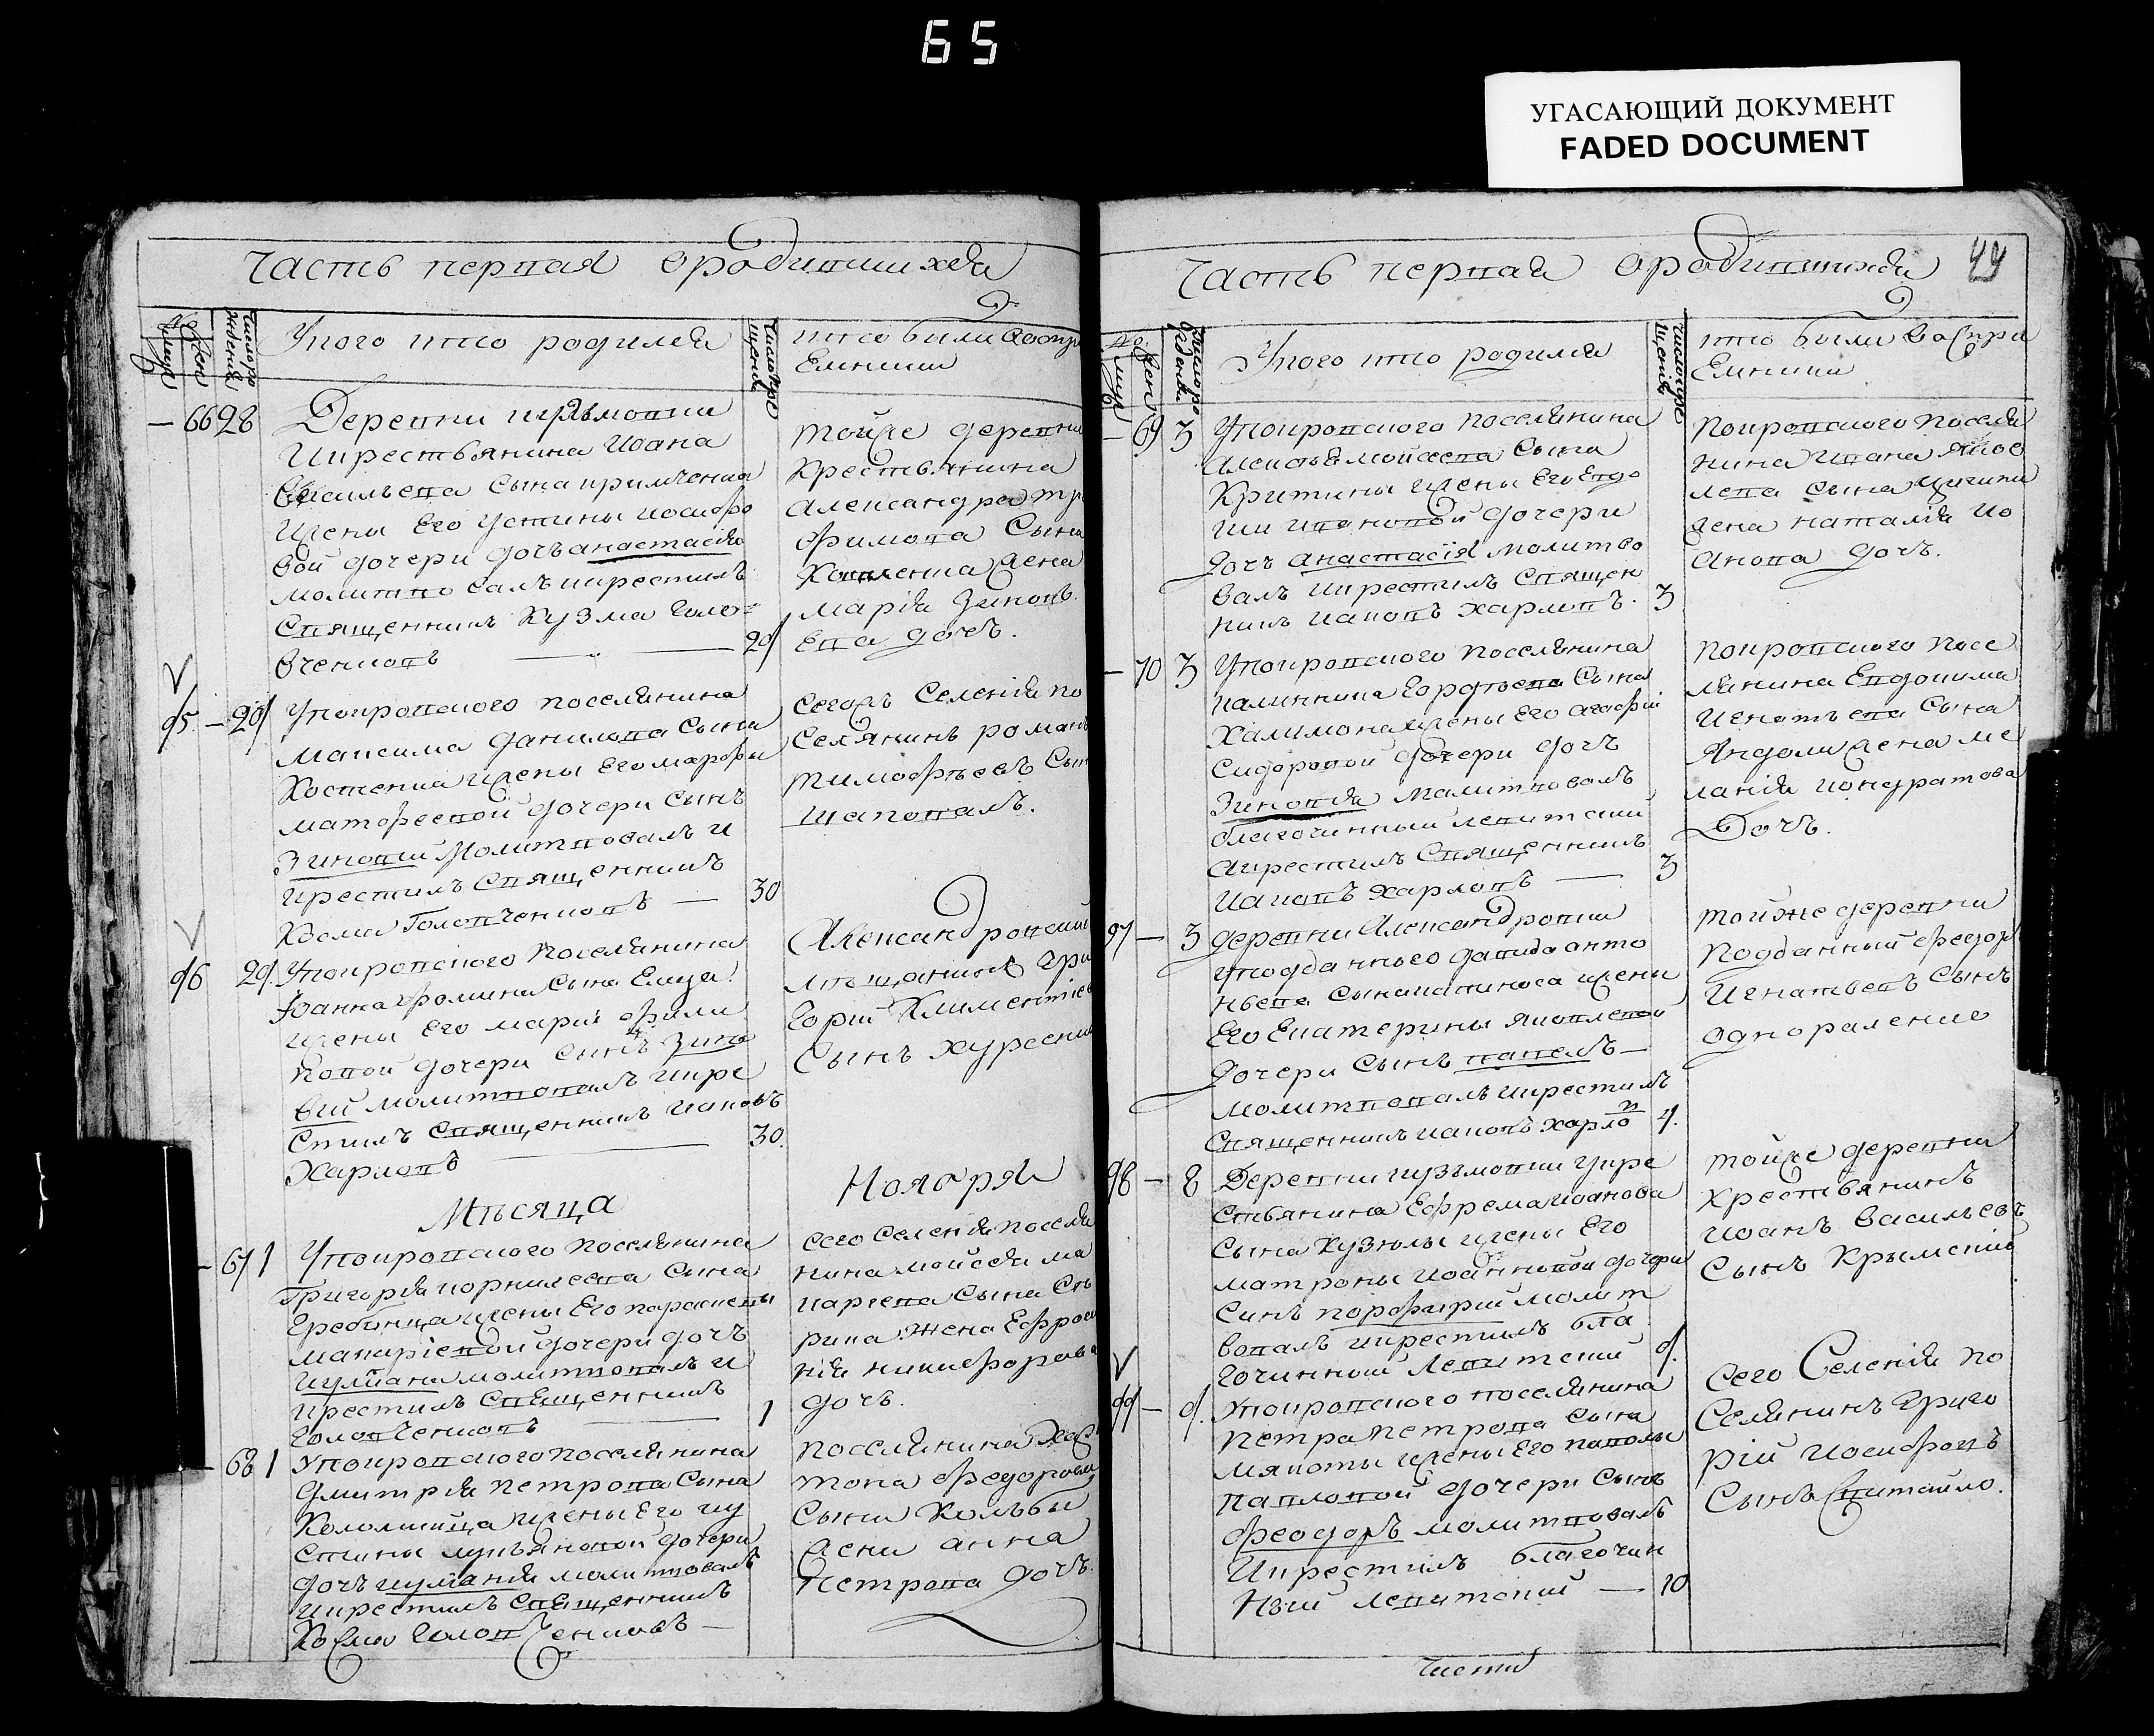 65
УГАСАЮЩИЙ ДОКУМЕНТ
FADED DOCUMENT
Часть первая о родившихся
У кого кто родился
кто были воспр
Емники
— 66 28 Деревни
Крестьянина Иоана
Васильева Сына кримченка
жены Его Устины иосифо
вой дочери дочь анастасія
молитвовалъ икрестилъ
Священникъ Кузма Голо=
вченковъ — 29
тойже деревни
Крестьянина
Александра тр
офимова Сына
жена
марія Зиновь
Ева дочь.
95 — 29 Упокровского поселянина
Максима данилова Сына
Костенка жены Его марфы
матфеевой дочери Сынъ
Зиновий Молитвовалъ и
крестилъ Священникъ
Козма Головченковъ — 30
Сегожъ Селенія по
Селянинъ романъ
тимофѣевъ Сын
Шаповалъ.
96 29 Упокровского поселянина
Іоанна фомина Сына
жены Его марии фили
повой дочери Сынъ Зино
вій молитвовалъ икре
Стилъ Священникъ иаковъ
Харловъ — 30.
Александровский
мѣщанинъ Гри
Горій Климентіев
Сынъ
Мѣсяца Ноября
— 67 1 Упокровского поселянина
Григорія корнилеева Сына
Гребинца жены Его параскевы
макаріевой дочери дочь
иуліана молитвовалъ и
крестилъ Священникъ
Головченковъ — 1
Сего Селенія поселя
нина мойсея ма
каріева Сына
жена Ефроси
нія никифорова
дочь.
— 68 1 Упокровского поселянина
дмитрія петрова Сына
Коломийца жены Его иу
стины лукьяновой дочери
дочь иуліанія молитвовалъ
икрестилъ Священникъ
Косма Головченковъ —
поселянина Хар
тона федорова
Сына
жена анна
Петрова дочь.
Часть первая о родившихся
44
У кого кто родился
кто были воспри
Емники
— 69 3 Упокровского поселянина
алексѣя мойсеева Сына
жены Его Евдо
кии ивановой дочери
дочь анастасія молитво
валъ икрестилъ Священ
никъ иаковъ харловъ. 3
покровского поселя
нина ивана яков
лева Сына
жена наталія ио
анова дочь.
— 70 3 Упокровского поселянина
калинника Гордѣева Сына
Халимона жены Его агафіи
Сидоровой дочери дочь
Зиновія Малитвовалъ
благочинный левитский
акрестилъ Священникъ
Иаковъ харловъ — 3
покровского посе
лянина Евдокима
Игнатьева Сына
жена ме
ланія кондратова
Дочь.
97 — 3 деревни Александровки
уподданнаго давида анто
ньева Сына жены
Его Екатерины яковлевой
дочери Сынъ павелъ —
молитвовалъ икрестилъ
Священникъ иаковъ харловъ 4.
тойже деревни
подданный федоръ
Игнатьевъ Сынъ
98 — 8 Деревни кузьмовки укре
стьянина Ефрема иоанова
Сына жены Его
матроны иоанновой дочери
Синъ порфирий молит
вовалъ икрестилъ бла
гочинный левитский 9.
тойже деревни
Крестьянинъ
иоанъ васильевъ
Сынъ Крымскій
99 — 9. Упокровского поселянина
петра петрова Сына
мякоты жены Его
павловой дочери Сынъ
феодоръ молитвовалъ
икрестилъ благочин
ный левитский — 10
Сего Селенія по
Селянинъ Григо
рій иосифовъ
Сынъ Свитайло.